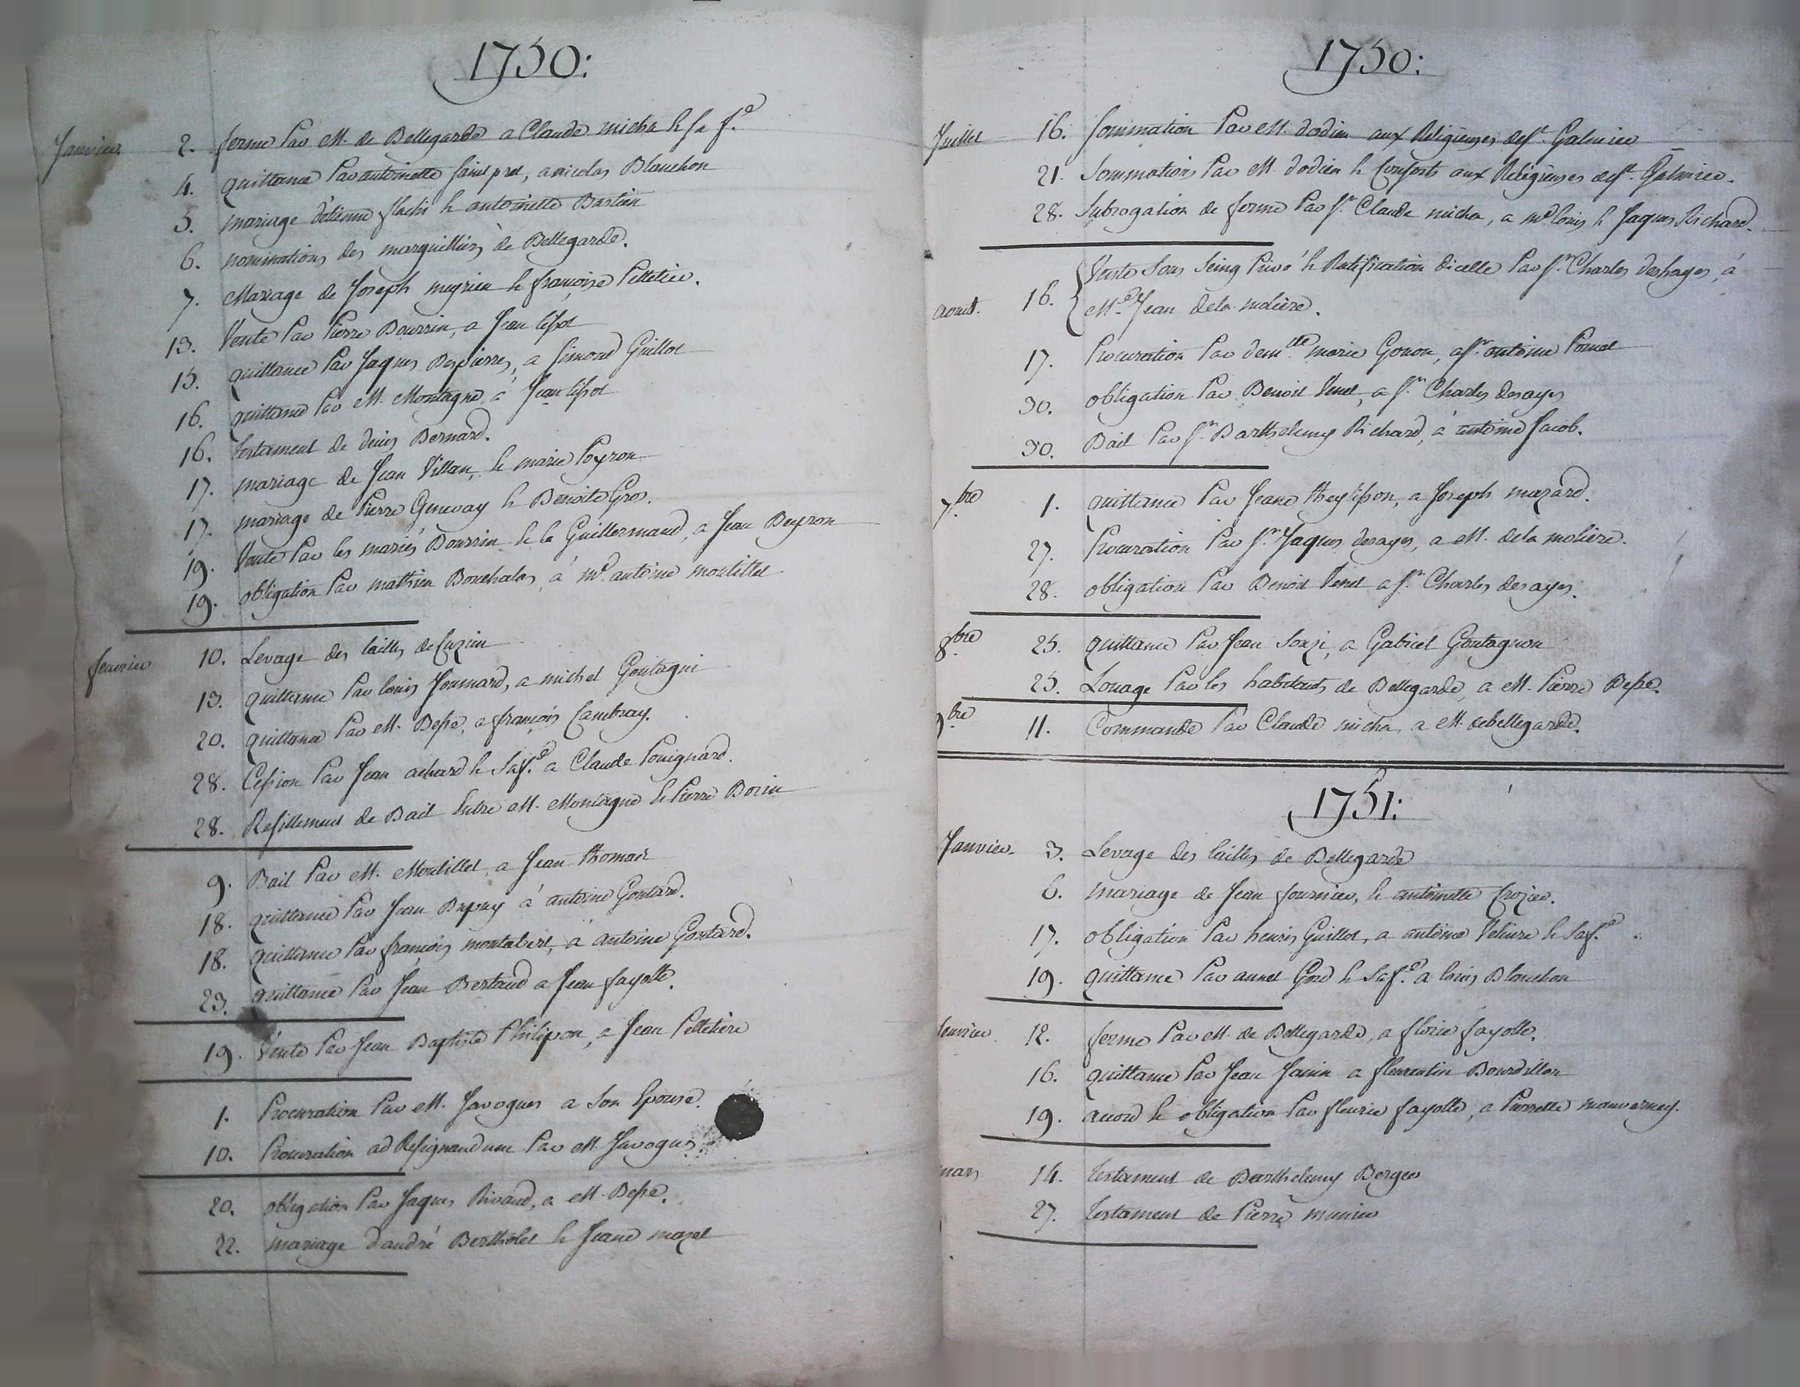 1750:
Janvier 2. ferme Par M. de Bellegarde a Claude micha & sa f.e
4. quittance Par antoinette, a nicolas Blanchon
5. mariage d'étienne & antoinette Bastien
6. nominations des marguilliers de Bellegarde.
7. Mariage de Joseph meyrieu & françoise Pelletier.
13. Vente Par Pierre Bourrin, a Jean
15. quittance Par Jaques Depierres, a Simond Guillot
16. quittance Par M. Montagne, à Jean
16. testament de denis Bernard.
17. mariage de Jean Villan, & marie Peyron
17. mariage de Pierre Genevay & Benoite Gros.
19. Vente Par les mariés Bourrin & la Guillermand, a Jean Beyron
19. obligation Par mathieu Bouchalas, à m.e antoine montillet
feuvrier 10. Levage des tailles de Cuzieu
13. quittance Par louis Journard, a michel
20. quittance Par M. Besse, a françois Cambray.
28. Cession Par Jean achard & Sa f.e a Claude Pouignard.
28. Resillement de Bail Entre M. Montagne & Pierre
9. Bail Par M. Montillet, a Jean thomas
18. quittance Par Jean Dupuy à antoine Goutard.
18. quittance Par françois montabert, à antoine Goutard.
23. quittance Par Jean Bertaud a Jean fayolle.
19. Vente Par Jean Baptiste Philipon, a Jean Pelletier
1. Procuration Par M. Javogues a Son Epouse.
10. Procuration ad Resignandum Par M Javogues
20. obligation Par Jaques Rivaud, a M. Besse.
22. mariage d'andré Bertholet & Jeane mazet
1750:
Juillet 16. Sommation Par M. dodieu aux Religieuses de S.t Galmier
21. Sommation Par M dodieu & Consorts aux Religieuses de S.t Galmier.
28. Subrogation de ferme Par S.r Claude micha, a m.e louis & Jaques Richard.
Vente Sous Seing Privé & Ratification dicelle Par S.r Charles deshayes, à
aoust. 16. M.e Jean dela molière.
17. Procuration Par dem.lle marie Gonon, a S.r antoine
30. obligation Par Benoit Venet, a S.r Charles desayes
30. Bail Par S.r Barthelemy Richard, à antoine Jacob.
7.bre 1. quittance Par Jeane, a Joseph mazard.
27. Procuration Par S.r Jaques desayes, a M. dela molière.
28. obligation Par Benoit Venet a S.r Charles desayes.
8.bre 25. quittance Par Jean, a Gabriel Goutagnon
25. Louage Par les habitants de Bellegarde, a M. Pierre Besse.
9.bre 11. Commande Par Claude micha, a M. debellegarde.
1751:
Janvier. 3. Levage des tailles de Bellegarde
6. mariage de Jean fournier, & antoinette Crozier.
17. obligation Par henris Guillot, a antoine & Sa f.e
19. quittance Par annet & Sa f.e a louis Blanchon
feuvrier 12. ferme Par M. de Bellegarde, a florie fayolle.
16. quittance Par Jean Janin a fleurentin Bourdillon
19. accord & obligation Par fleurie fayolle, a Pierrette mauvernay.
mars 14. testament de Barthelemy Berger
27. testament de Pierre munier